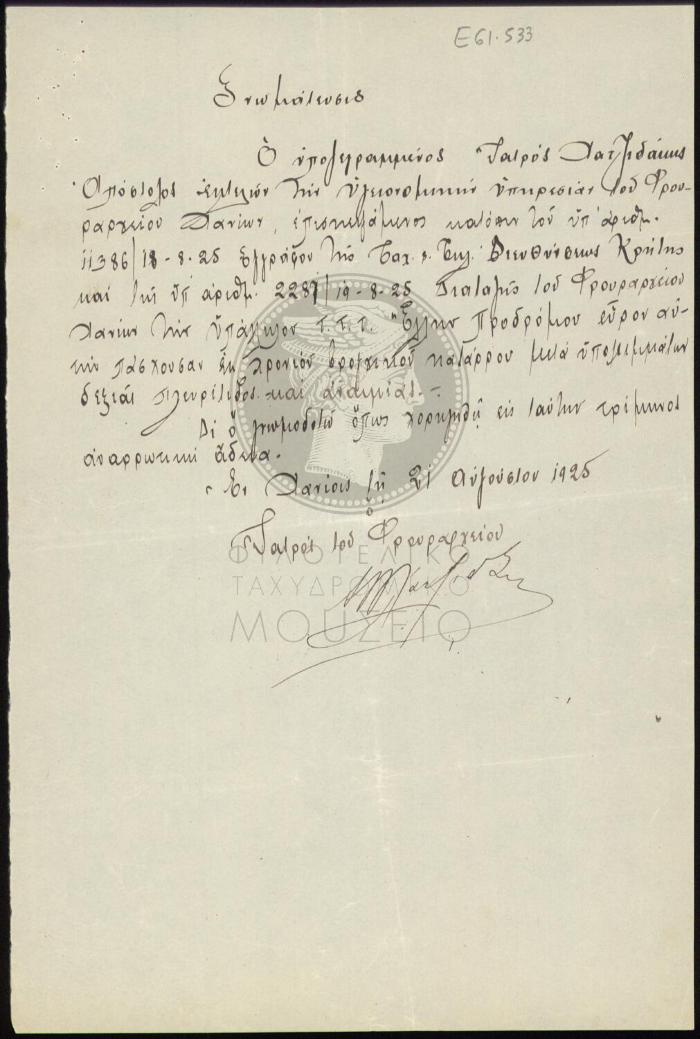 Ε61.533
Γνωμάτευσις
Ο ὑπογεγραμμένος Ἰατρός Χατζιδάκις
Ἀπόστολος ἐκτελῶν τὴν ὑγειονομικὴν ὑπηρεσίαν τοῦ Φρου-
ραρχείου Χανίων, ἐπισκεψάμενος κατόπιν τοῦ ὑπ' ἀριθμ.
11386/18-8-25 ἐγγράφου τῆς Ταχ. κ. Τηλ. Διευθύνσεως Κρήτης
καὶ τῆς ὑπ' ἀριθμ. 2287/19-8-25 Διαταγῆς τοῦ Φρουραρχείου
Χανίων τὴν ὑπάλληλον Τ.Τ.Τ. Ἑλένην Προδρόμου εὗρον αὐ-
τὴν πάσχουσαν ἐκ χρονίου βρογχικοῦ κατάρρου μετὰ ὑπολειμμάτων
δεξιᾶς πλευρίτιδος καὶ ἀναιμίας.-
Δι' ὅ γνωμοδοτῶ ὅπως χορηγηθῇ εἰς ταύτην τρίμηνος
ἀναρρωτικὴ ἄδεια.
Ἐν Χανίοις τῇ 21 Αὐγούστου 1925
ὁ
Ἰατρός τοῦ Φρουραρχείου
ΦΙΛΟΤΕΛΙΚΟ
ΤΑΧΥΔΡΟΜΙΚΟ
ΜΟΥΣΕΙΟ